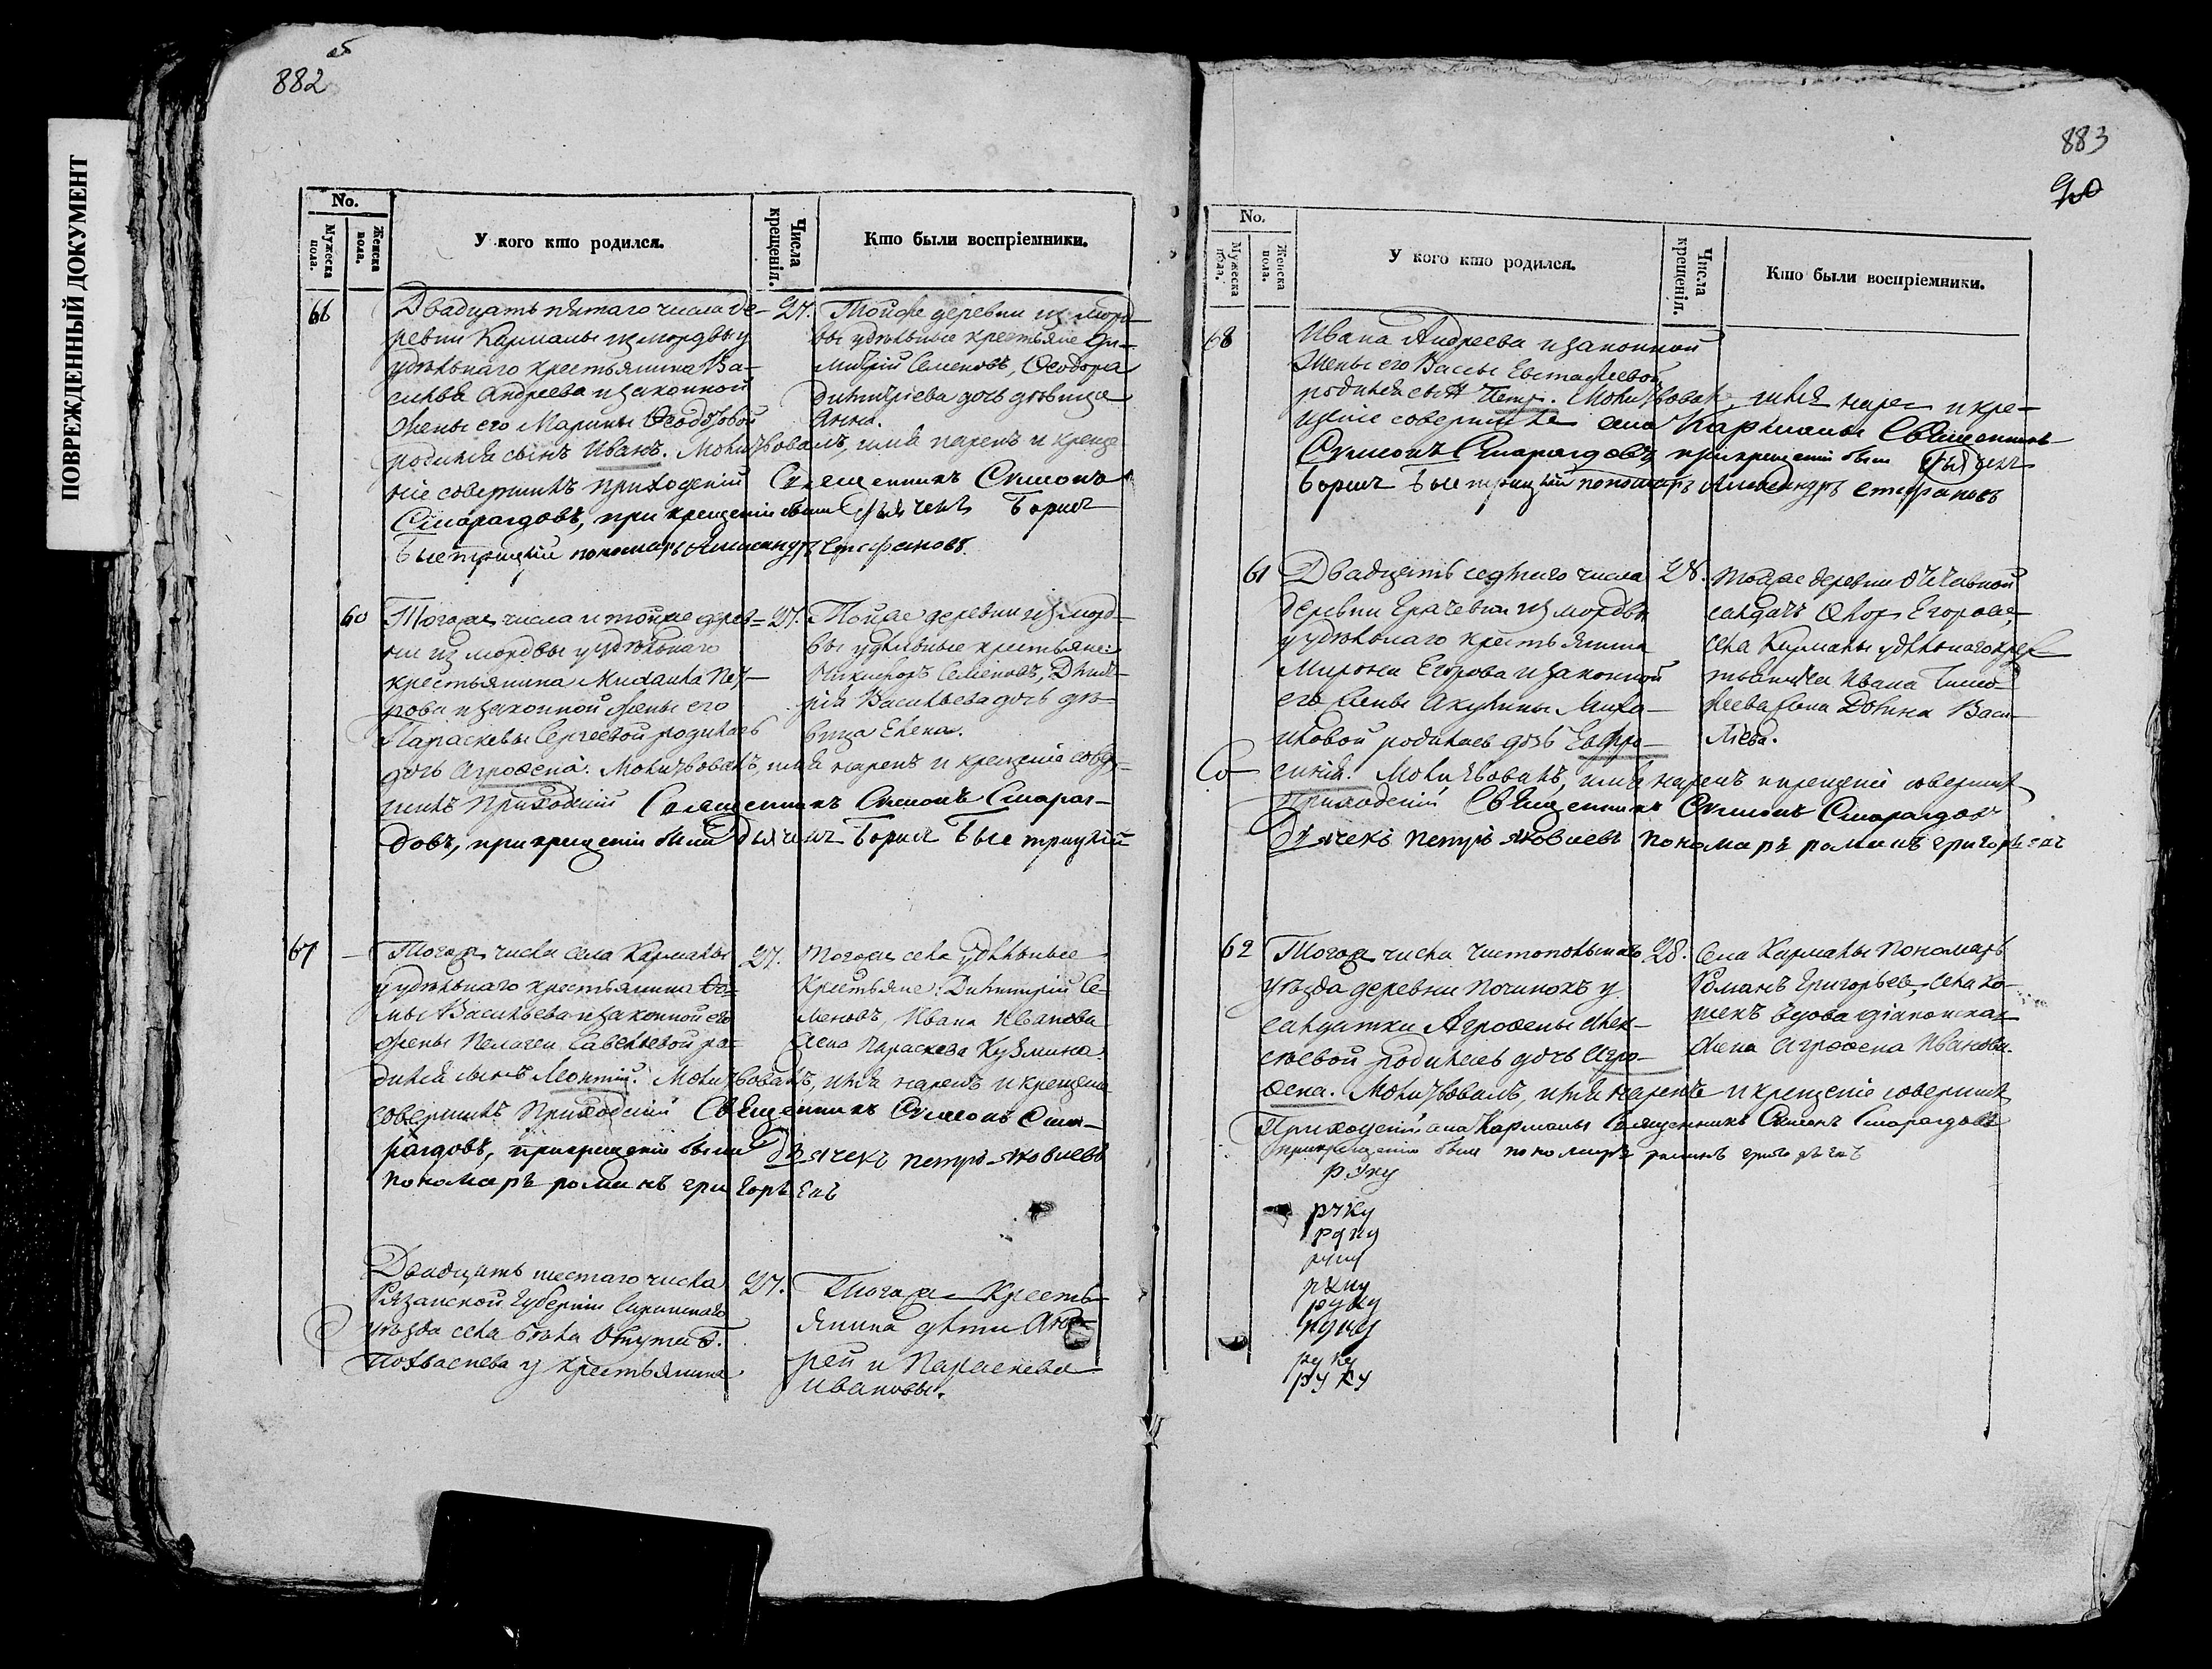 ПОВРЕЖДЕННЫЙ ДОКУМЕНТ
882
No.
Мужеска пола.
Женска пола.
У кого кто родился.
Числа крещенія.
Кто были воспріемники.
66
Двадцать пятаго числа де-
ревни Кармалы из мордвы у
удѣльнаго крестьянина Ва-
силья Андреева и законной
жены его Марины Ѳеодоровой
родился сынъ Иванъ. Молитвовалъ, имя нарекъ и креще
ніе совершилъ приходскій Священникъ Симеонъ
Смарагдовъ, при крещеніи были Дьячекъ Борисъ
Быстрицкій пономарь Александръ Стефановъ.
27.
Тойже деревни из морд
вы удѣльные крестьяне Ди-
митрій Семеновъ, Ѳеодора
Димитріева дочь дѣвица
Анна.
60
Тогоже числа и тойже дерев=
ни из мордвы у удѣльнаго
крестьянина Михаила Пет-
рова и законной жены его
Параскевы Сергеевой родилась
дочь Агрофена. Молитвовалъ, имя нарекъ и крещеніе совер-
шилъ Приходскій Священникъ Симеонъ Смараг-
довъ, при крещеніи были Дьячекъ Борисъ Быстрицкій
27.
Тойже деревни из морд-
вы удѣльные крестьяне:
Никифоръ Семеновъ, Димит-
рія Васильева дочь дѣ-
вица Елена.
67
Тогоже числа села Кармалы
у удѣльнаго крестьянина Ѳо-
мы Васильева и законной его
жены Пелагеи Савельевой ро-
дился сынъ Леонтій. Молитвовалъ, имя нарекъ и крещеніе
совершилъ Приходскій Священникъ Симеонъ Сма-
рагдовъ, при крещеніи были дьячекъ петръ яковлевъ
пономаръ романъ григорьевъ
27.
Тогоже села удѣльные
Крестьяне: Димитрій Се-
меновъ, Ивана Иванова
жена Параскева Кузмина
Двадцать шестаго числа
Рязанской Губерніи
уѣзда села
у крестьянина
27.
Тогоже Кресть-
янина дѣти Анд-
рей и Параскева
Ивановы.
883
90
No.
Мужеска пола.
Женска пола.
У кого кто родился.
Числа крещенія.
Кто были воспріемники.
68
Ивана Андреева и законной
жены его Вассы Евстафіевой
родился сынъ Петръ. Молитвовалъ, имя нарек и кре-
щеніе совершилъ села Кармалы Священникъ
Симеонъ Смарагдовъ, при крещеніи были Дьячекъ
Борисъ Быстрицкій пономарь Александръ Стефановъ
61
Двадцать седьмаго числа
деревни Ерачевки из мордвы
у удѣльнаго крестьянина
Мирона Егорова и законной
его жены Акулины Михай-
иловой родилась дочь Евфро-
синія. Молитвовалъ, имя нарекъ и крещеніе совершилъ
Приходскій Священникъ Симеонъ Смарагдовъ
Дьячекъ петръ яковлевъ пономаръ романъ григорьевъ
28.
Тойже деревни
салдатъ Егоров,
села Кармалы удѣльнаго крес-
тьянина Ивана Тимо-
феева жена Васи-
льева.
62
Тогоже числа Чистопольскаго
уѣзда деревни Починокъ у
салдатки Агрофены Алек-
сѣевой родилась дочь Агро-
фена. Молитвовалъ, имя нарекъ и крещеніе совершилъ
Приходскій села Кармалы Священникъ Симеонъ Смарагдовъ
при крещеніи были пономаръ романъ григорьевъ
28.
Села Кармалы Пономарь
Романъ Григорьевъ, села Ко-
вдова діаконская
жена Агрофена Иванова.
руку
руку
руку
руку
руку
руку
руку
руку
руку